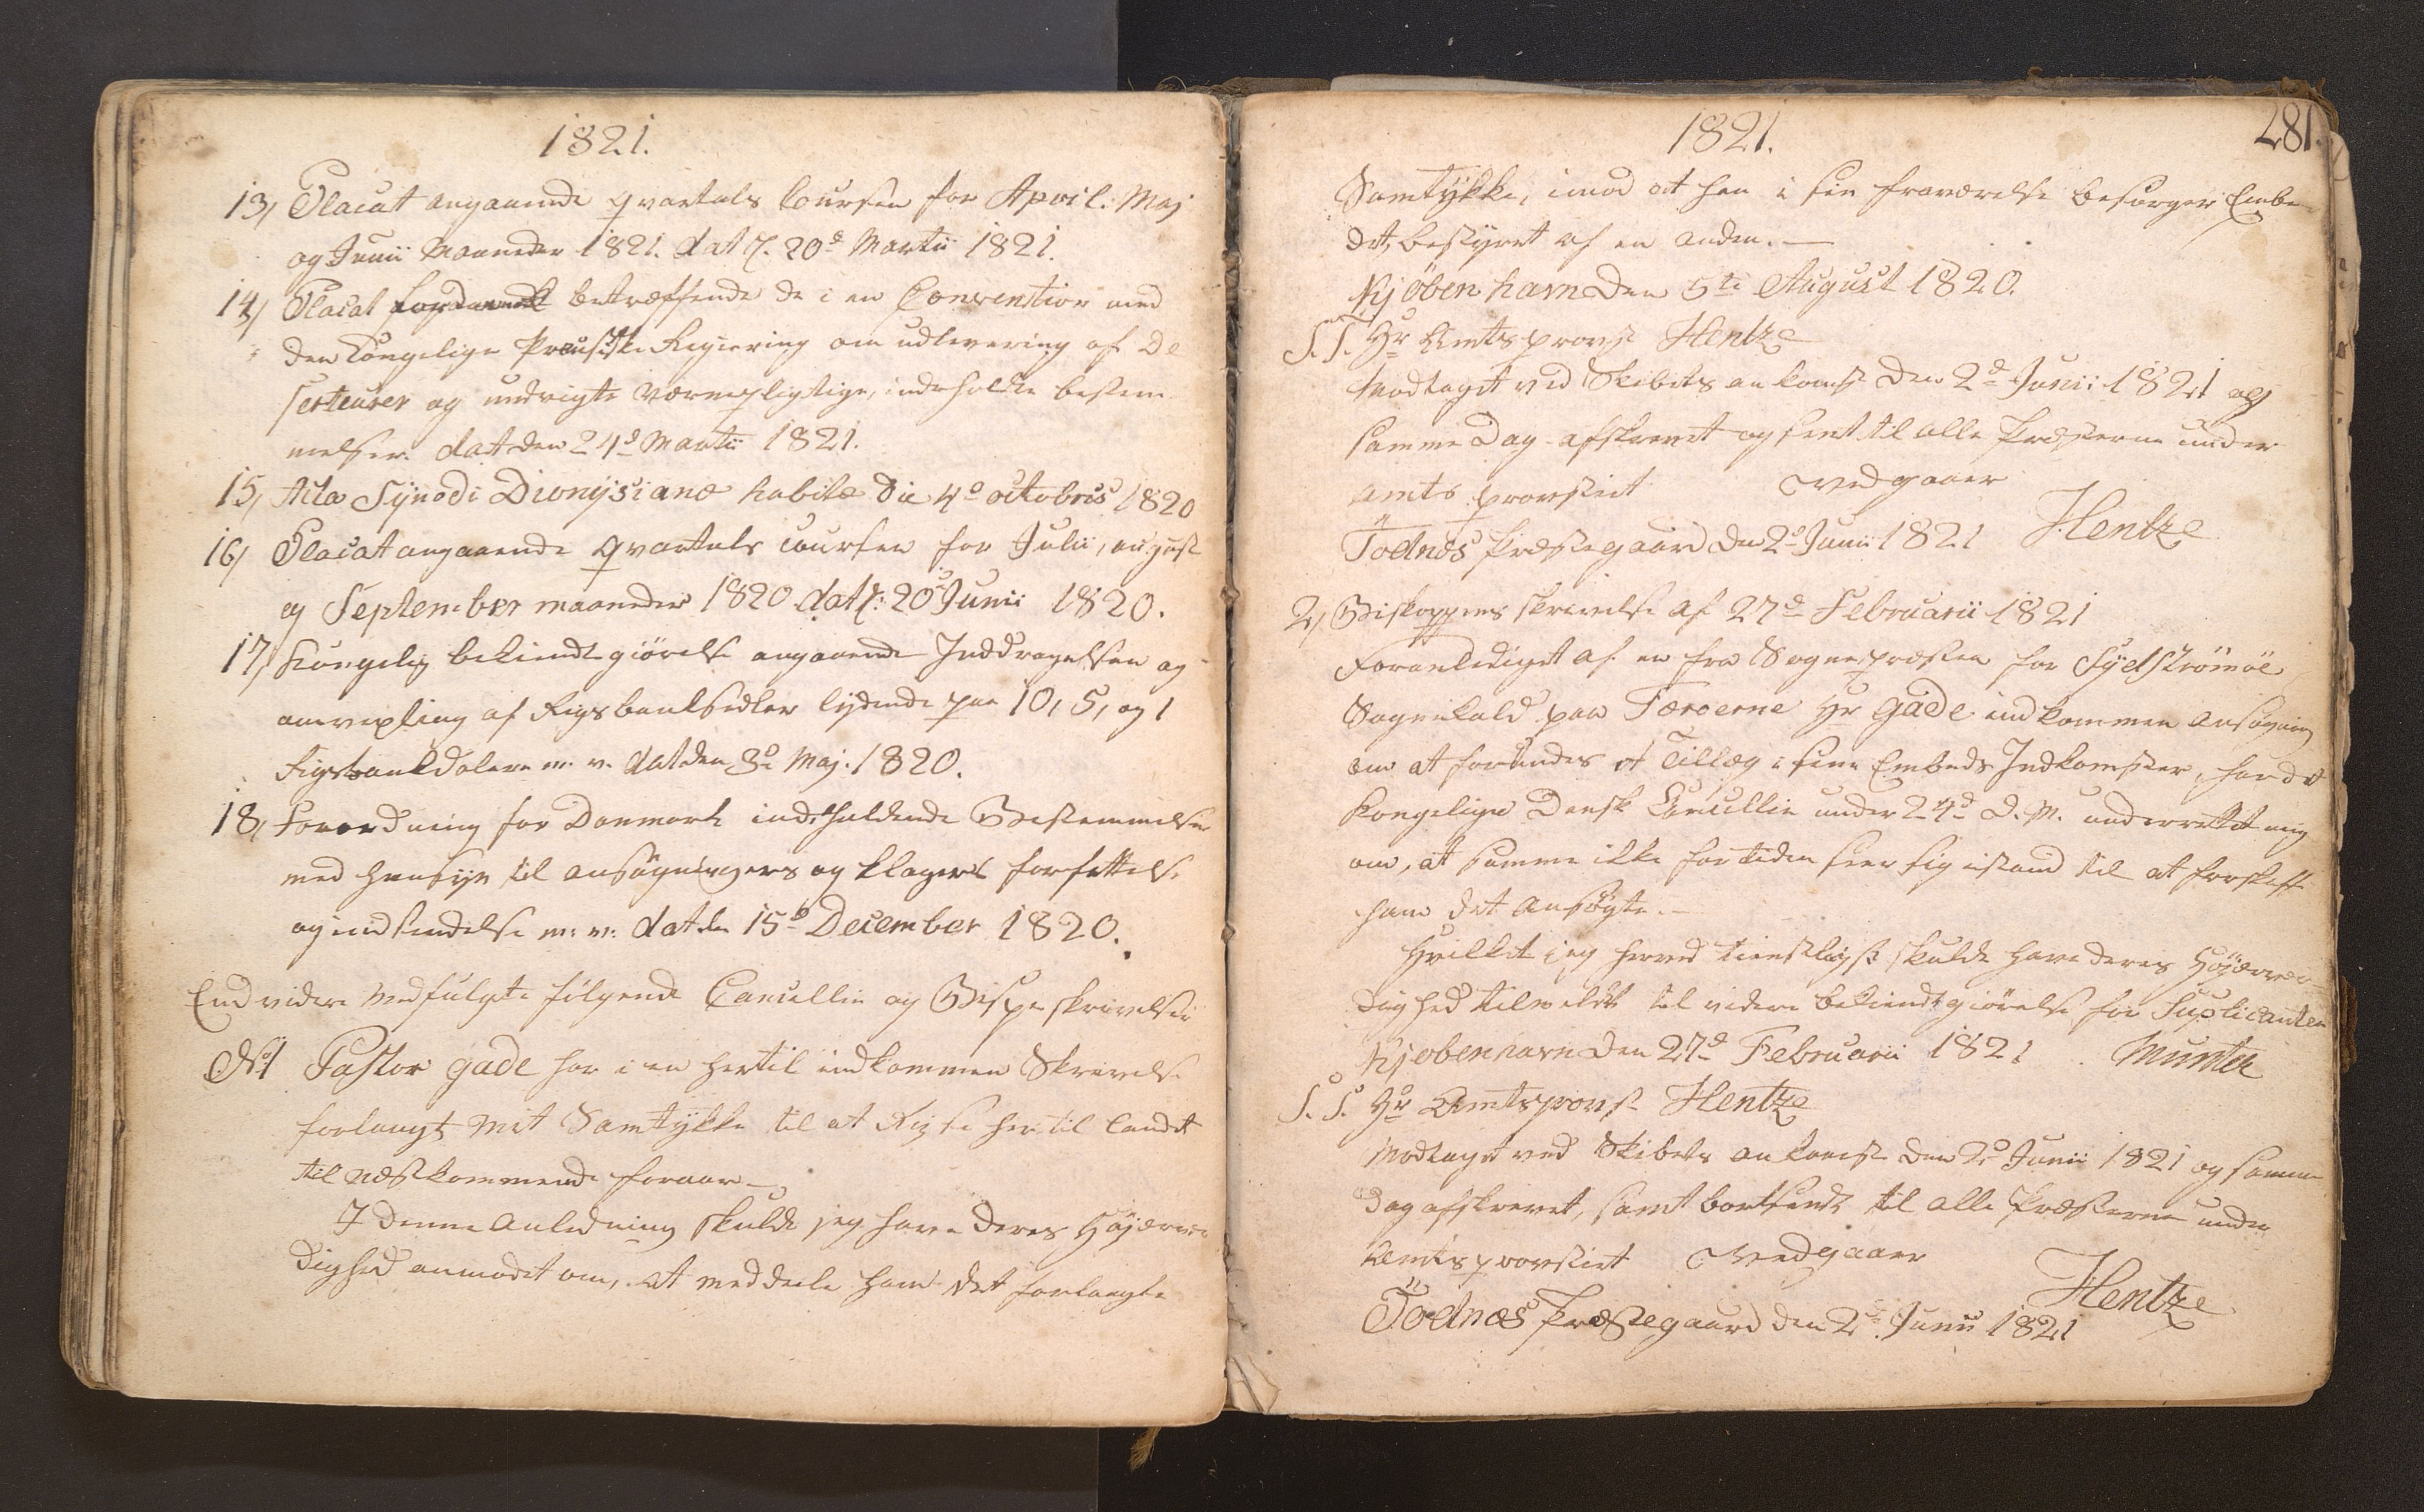 1821.
13, Placat angaaende qvartals Coursen for April. Maj
og Junii Maaneder 1821. dat K. 20d Martii 1821.
14, Placat betræffende de i en Convention med
den Kongelige Preusiske Regiering om udlevering af De
serteurer og undvigte Værnepligtige, indeholdte bestem
melser. dat den 24d Martii 1821.
15, Acta Synodi Dionysianæ habitæ die 4d octobris 1820
16, Placat angaaende qvartals Coursen for Julii, august
og September maaneder 1820 dat K: 20d Junii 1820.
17, Kongelig bekiendtgiörelse angaaende Inddragelsen og
omvexling af Rigsbanksedler lydende paa 10, 5, og 1
Rigsbankdalere m. v. dat den Maj. 1820.
18, Forordning for Danmark indeholdende Bestemmelser
med Hensyn til ansögningers og klagers forfattelse
og indsendelse m: v: dat den 15d December 1820.
End videre medfulgte fölgende Cancellie og Bispe skrivelser
No 1 Pastor Gade har i en hertil indkommen Skrivelse
forlangt mit Samtykke til at Reise her til Landet
til næstkommende foraar—
I denne Anledning skulde jeg have Deres Höjærvær
dighed anmodet om, at meddeele ham det forlangte
1821.
281.
Samtykke, imod at han i sin fraværelse besörger Embe-
det bestyret af en anden.—
Kjöbenhavn den 5te August 1820.
S. T. Hr Amtsprovst Hentze
Modtaget ved Skibets ankomst den 2d Junii 1821 og
samme Dag afskrevet og sent til alle Præsterne under
amts provstiet vedgaaer
Todnæs Præstegaard den 2d Junii 1821 Hentze
2, Biskoppens skrivelse af 27d Februarii 1821
Foranlediget af en fra Sognepræsten for Sydströmöe
Sognekald paa Færoerne Hr Gade indkommen ansögning
om at forundes et Tillæg i sine Embeds Indkomster, har det
Kongelige Dansk Cancellie under 24d D. M. underrettet mig
om, at samme ikke for tiden seer sig istand til at forskaffe
ham det Ansögte.—
Hvilket jeg herved tienstligst skulde have deres Höjærvær-
dighed tilmeldt til videre bekiendtgiörelse for Suplicanten
Kjobenhavn den 27d Februarii 1821. Munter
S. T. Hr Amtsprovst Hentze
Modtaget ved Skibets ankomst den 2d Junii 1821 og samme
Dag afskrevet, samt bortsendt til alle Præsterne under
Amtsprovstiet vedgaaer
Hentze
Todnæs Præstegaard den 2d Junii 1821